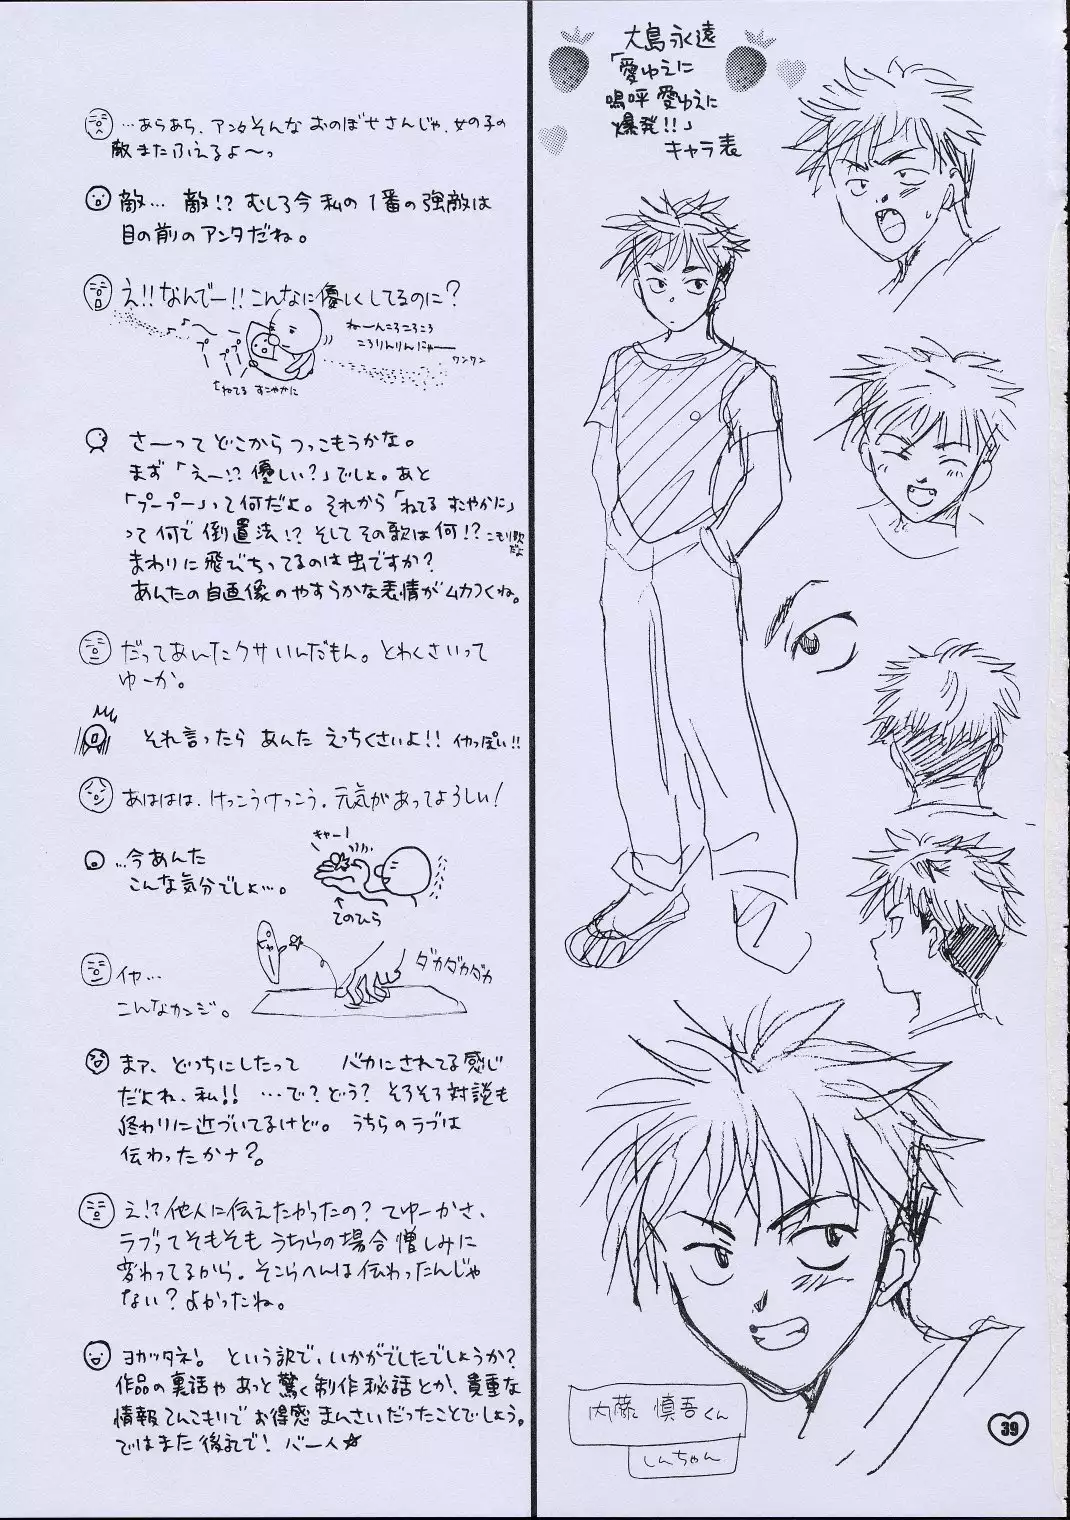 …あらあら、アンタそんな おのぼせさんじゃ、女の子の
敵またふえるよ〜っ
敵… 敵!? むしろ今 私の 1番の強敵は
目の前のアンタだね。
え!! なんでー!! こんなに優しくしてるのに?
♪〜
プープープー
ねーんころころころ
ころりんりんにゃー
ワンワン
↑ねてる すこやかに
さーって どこから つっこもうかな。
まず「えー!? 優しい?」でしょ。あと
「プープー」って何だよ。それから「ねてる すこやかに」
って何で 倒置法!? そしてその歌は何!? こもり歌だよ
まわりに飛びちってるのは虫ですか?
あんたの自画像のやすらかな表情がムカつくね。
だってあんたクサいんだもん。とわくさいって
ゆーか。
それ言ったら あんた えっちくさいよ!! イカっぽい!!
あははは、けっこうけっこう。元気があってよろしい!
…今あんた
こんな気分でしょ…。
キャー!
↑てのひら
イヤ…
こんなカンジ。
ピャー
ダカダカダカ
まァ、どっちにしたって バカにされてる感じ
だよね、私!! …で? どう? そろそろ対談も
終わりに近づいてるけど。 うちらのラブは
伝わったかナ?。
え!? 他人に伝えたかったの? てゆーかさ、
ラブってそもそも うちらの場合 憎しみに
変わってるから。そこらへんは伝わったんじゃ
ない? よかったね。
ヨカッタネ!。 という訳で、いかがでしたでしょうか?
作品の裏話や あっと驚く制作秘話とか、貴重な
情報てんこもりで お得感 まんさいだったことでしょう。
ではまた後ほど! バーイ☆
大島永遠
「愛ゆえに
嗚呼 愛ゆえに
爆発!!」
キャラ表
内藤 慎吾くん
しんちゃん
39